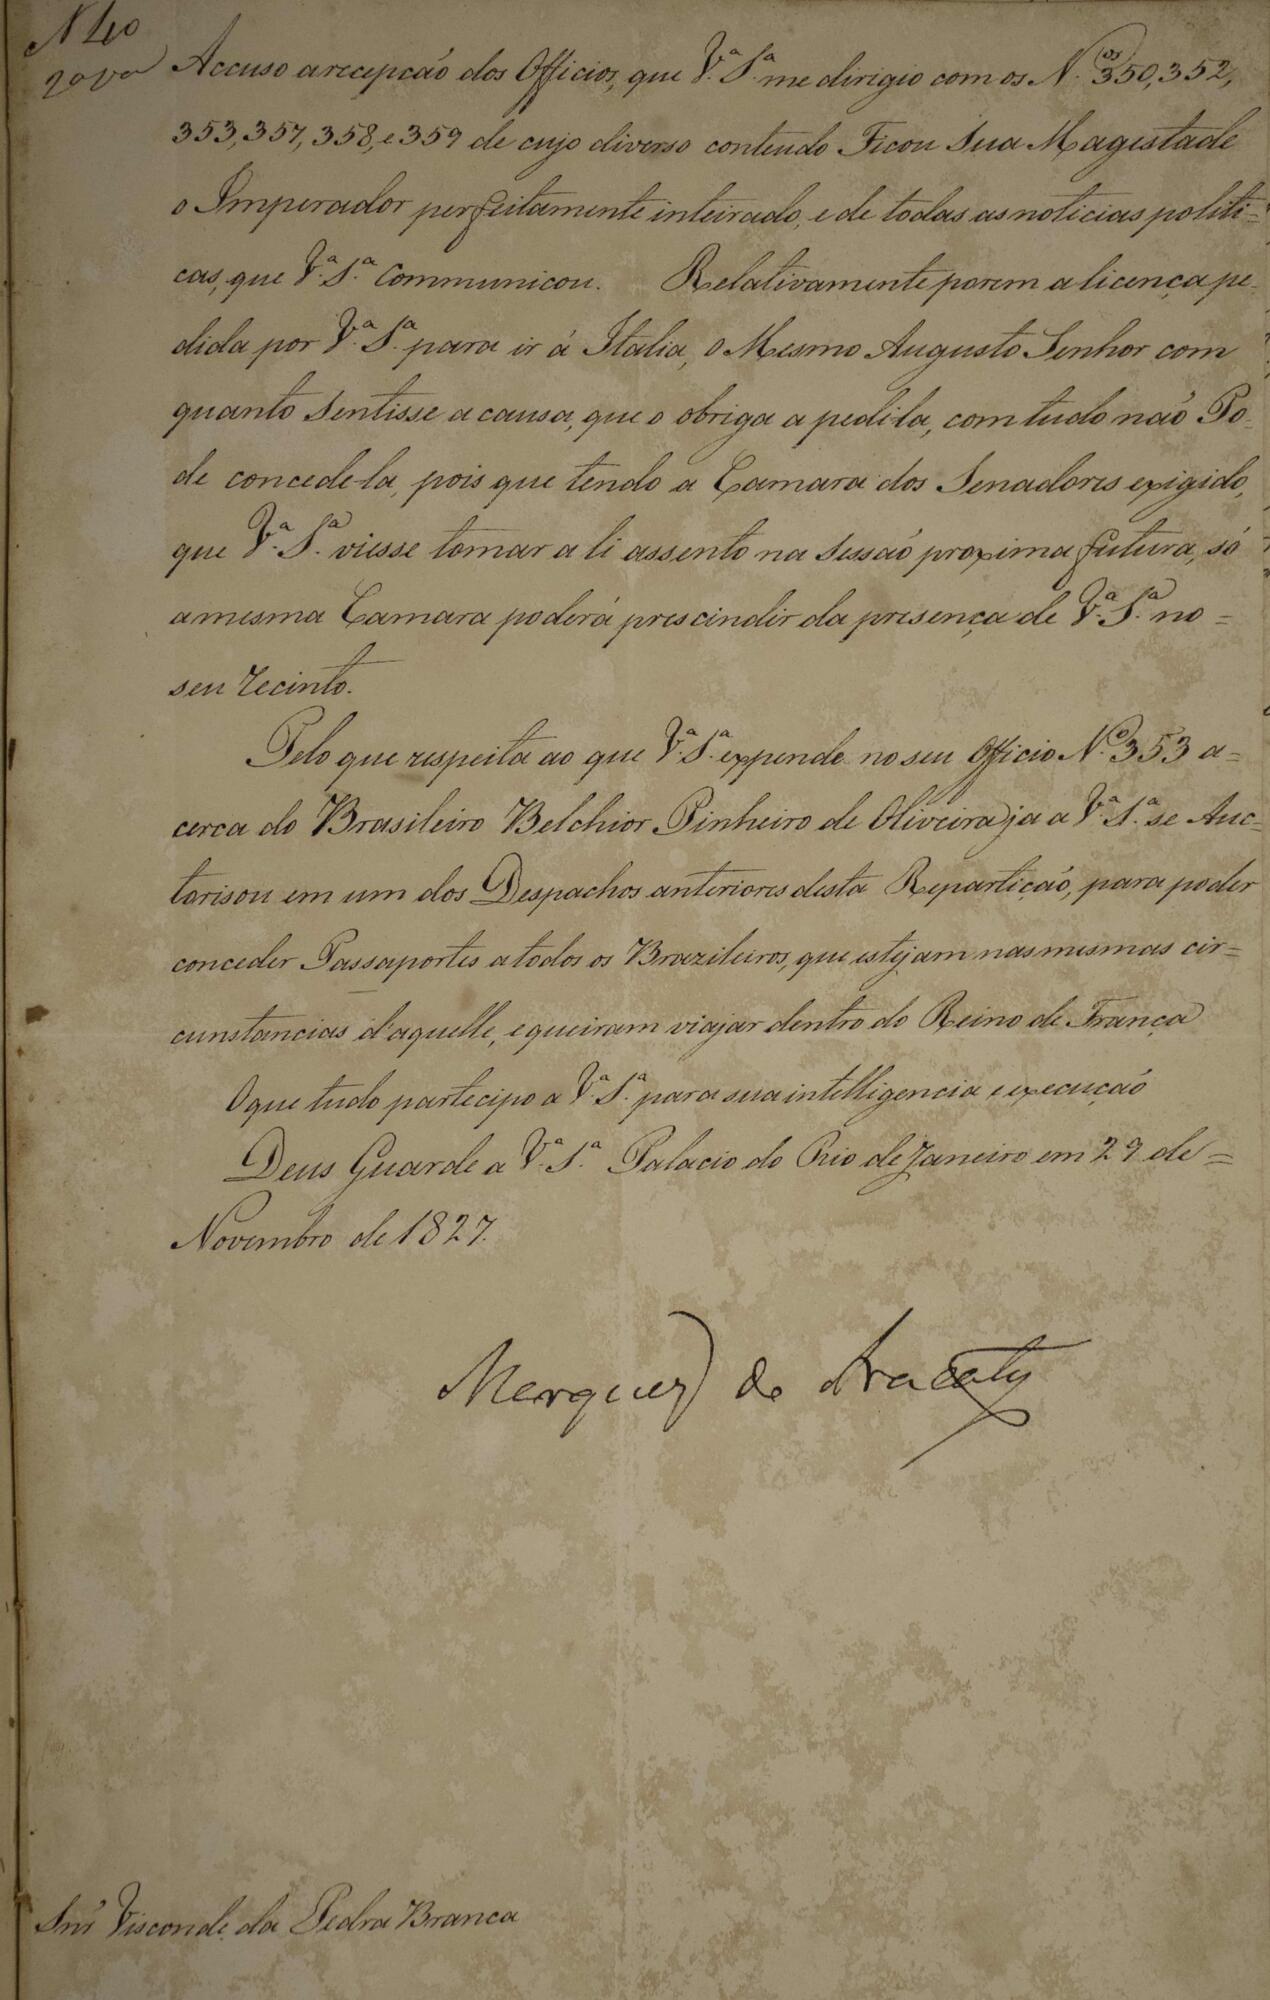 N 40
Accuso a recepção dos Officios, que V.ª S.ª me dirigio com os N.ºˢ 350, 352,
353, 357, 358, e 359 de cujo diverso contendo Ficou Sua Magestade
o Imperador perfeitamente inteirado, e de todas as noticias politi=
cas, que V.ª S.ª Communicou. Relativamente porem a licença pe-
dida por V.ª S.ª para ir á Italia, o Mesmo Augusto Senhor com
quanto Sentisse a causa, que o obriga a pedi-la, com tudo não Po-
de concede-la, pois que tendo a Camara dos Senadores exigido,
que V.ª S.ª viesse tomar a li assento na Sessão proxima futura, só
a mesma Camara poderá prescindir da presença de V.ª S.ª no=
seu recinto.
Pelo que respeita ao que V.ª S.ª expende no seu Officio N.º 353 a=
cerca do Brasileiro Belchior Pinheiro de Oliveira ja a V.ª S.ª se Auc=
torisou em um dos Despachos anteriores desta Repartição, para poder
conceder Passaportes a todos os Brazileiros, que estejam nas mesmas cir=
cunstancias d'aquelle, e queiram viajar dentro do Reino de França
O que tudo partecipo a V.ª S.ª para sua intelligencia e execução
Deus Guarde a V.ª S.ª Palacio do Rio de Janeiro em 29 de=
Novembro de 1827.
Marquez de Aracaty
Snr Visconde da Pedra Branca